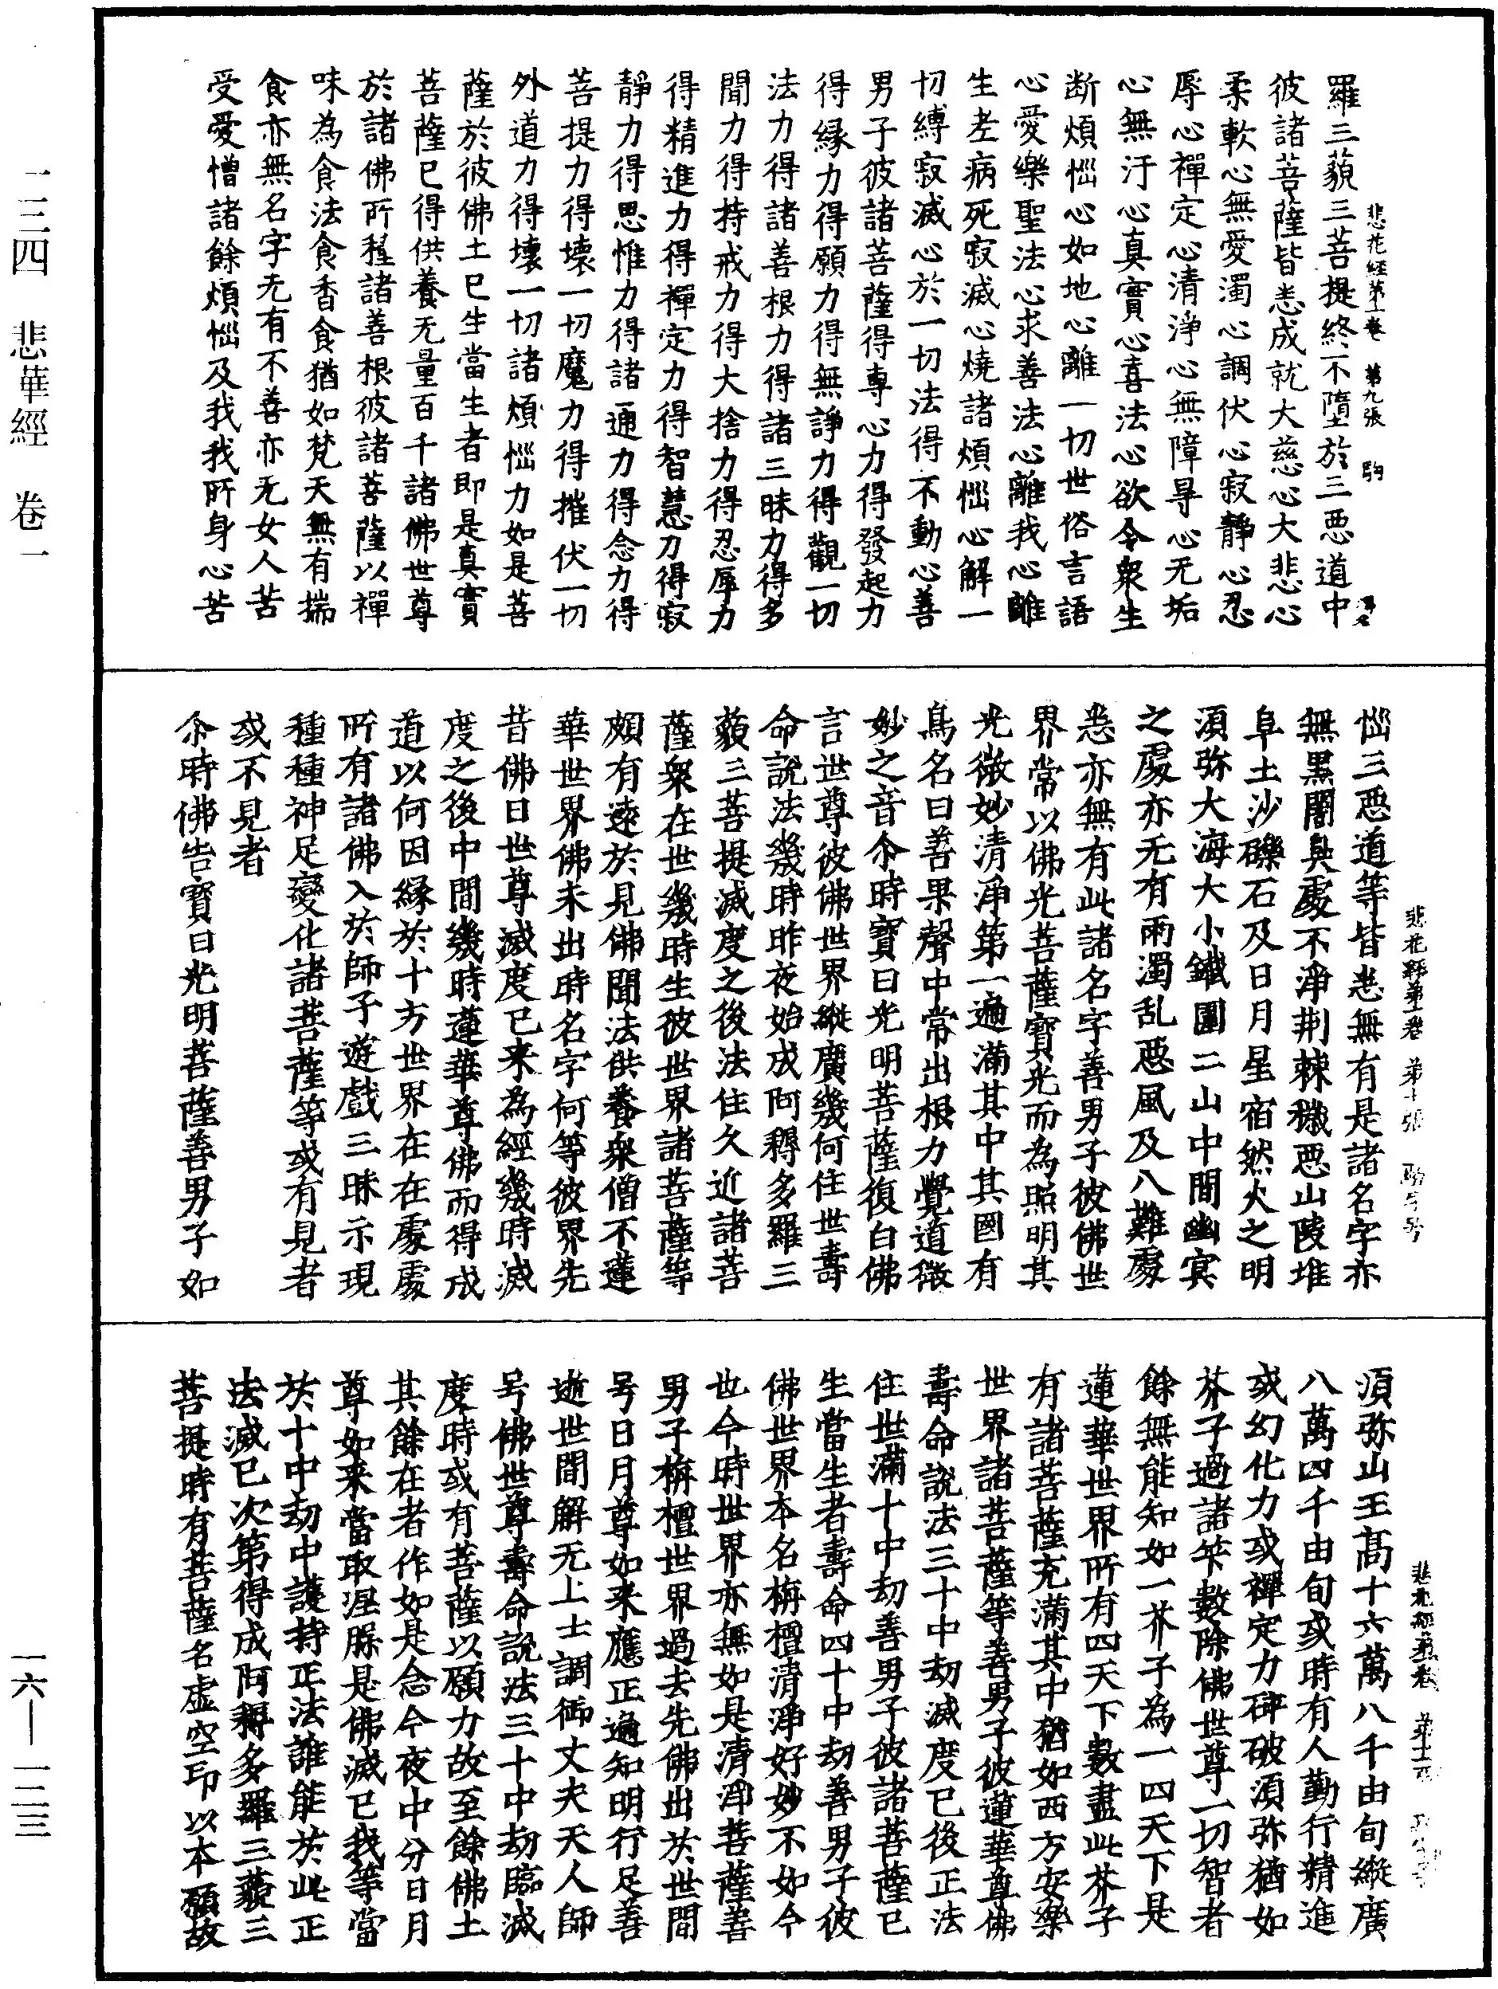 羅三藐三菩提終不墮於三惡道中
彼諸菩薩皆悉成就大慈心大悲心
柔軟心無愛濁心調伏心寂靜心忍
辱心禪定心清淨心無障㝵心无垢
心無汙心真實心喜法心欲令衆生
断煩惱心如地心離一切世俗言語
心愛樂聖法心求善法心離我心離
生老病死寂滅心燒諸煩惱心解一
切縛寂滅心於一切法得不動心善
男子彼諸菩薩得專心力得發起力
得緣力得願力得無諍力得觀一切
法力得諸善根力得諸三昧力得多
聞力得持戒力得大捨力得忍辱力
得精進力得禪定力得智慧力得寂
靜力得思惟力得諸通力得念力得
菩提力得壞一切魔力得摧伏一切
外道力得壞一切諸煩惱力如是菩
薩於彼佛土已生當生者即是真實
菩薩已得供養无量百千諸佛世尊
於諸佛所種諸善根彼諸菩薩以禪
味為食法食香食猶如梵天無有揣
食亦無名字无有不善亦无女人苦
受愛憎諸餘煩惱及我我所身心苦
悲花經第一卷 第九張
惱三惡道等皆悉無有是諸名字亦
無黑闇臭處不淨荆棘穢惡山陵堆
阜土沙礫石及日月星宿然火之明
須弥大海大小鐵圍二山中間幽冥
之處亦无有雨濁乱惡風及八難處
悉亦無有此諸名字善男子彼佛世
界常以佛光菩薩寶光而為照明其
光微妙清淨第一遍滿其中其國有
鳥名曰善果聲中常出根力覺道微
妙之音尒時寶日光明菩薩復白佛
言世尊彼佛世界縱廣幾何住世壽
命說法幾時昨夜始成阿耨多羅三
藐三菩提滅度之後法住久近諸菩
薩衆在世幾時生彼世界諸菩薩等
頗有遠於見佛聞法供養衆僧不蓮
華世界佛未出時名字何等彼界先
昔佛日世尊滅度已来為經幾時滅
度之後中間幾時蓮華尊佛而得成
道以何因緣於十方世界在在處處
所有諸佛入於師子遊戲三昧示現
種種神足變化諸菩薩等或有見者
或不見者
尒時佛告寶日光明菩薩善男子如
悲花經第一卷 第十張
須弥山王髙十六萬八千由旬縱廣
八萬四千由旬或時有人勤行精進
或幻化力或禪定力碎破須弥猶如
芥子過諸筭數除佛世尊一切智者
餘無能知如一芥子為一四天下是
蓮華世界所有四天下數盡此芥子
有諸菩薩充滿其中猶如西方安樂
世界諸菩薩等善男子彼蓮華尊佛
壽命說法三十中劫滅度已後正法
住世滿十中劫善男子彼諸菩薩已
生當生者壽命四十中劫善男子彼
佛世界本名栴檀清淨好妙不如今
也今時世界亦無如是清淨菩薩善
男子栴檀世界過去先佛出於世間
号日月尊如来應正遍知明行足善
逝世間解无上士調御丈夫天人師
号佛世尊壽命說法三十中劫臨滅
度時或有菩薩以願力故至餘佛土
其餘在者作如是念今夜中分日月
尊如来當取涅槃是佛滅已我等當
於十中劫中護持正法誰能於此正
法滅已次第得成阿耨多羅三藐三
菩提時有菩薩名虛空印以本願故
一二三四 悲華經 卷一
一六—一二三